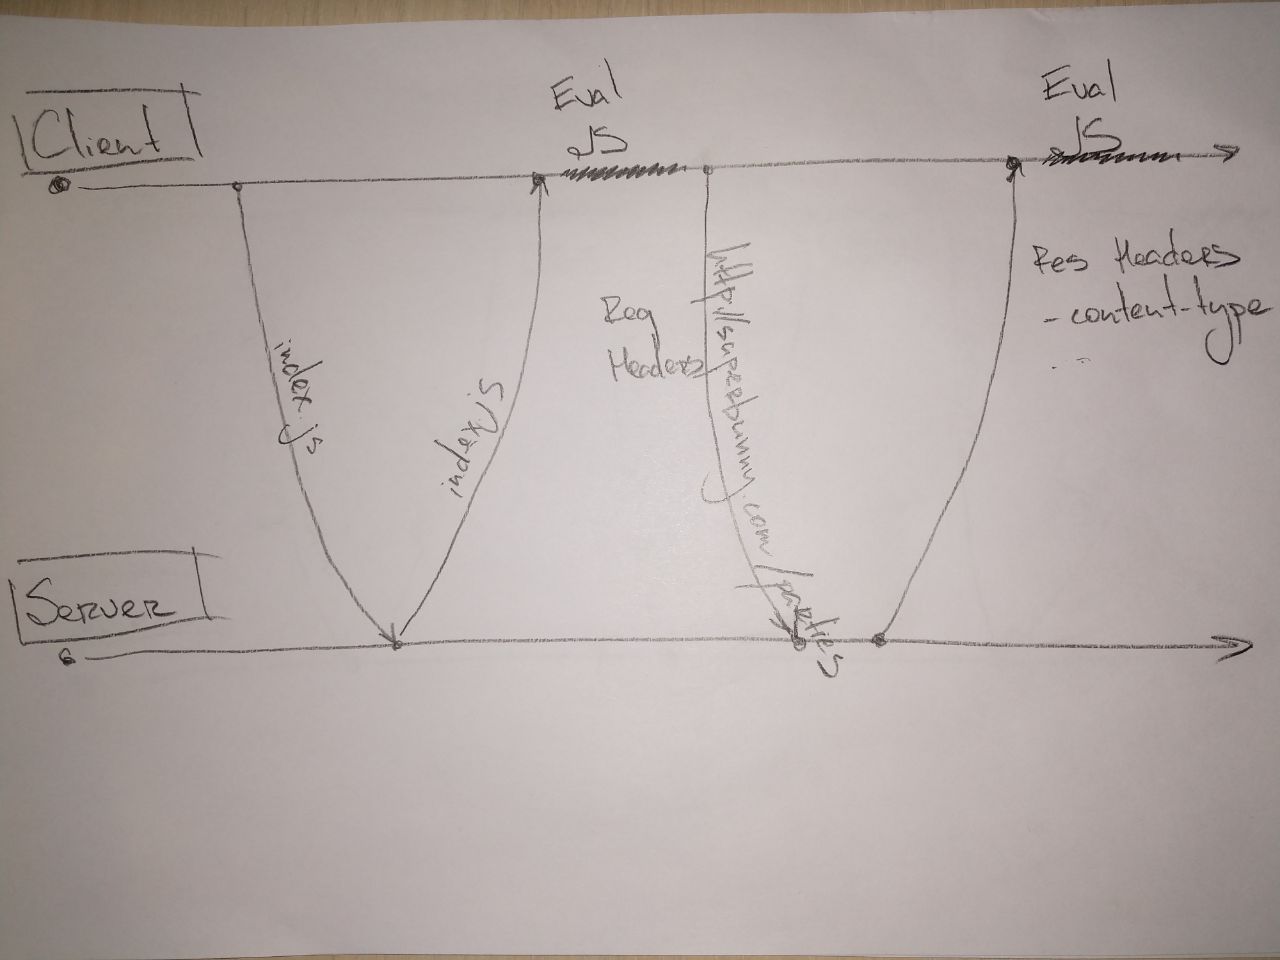 Client
Eval
JS
Eval
JS
index.js
index.js
Req
Headers
http://superbunny.com/parties
Res Headers
- content-type
Server